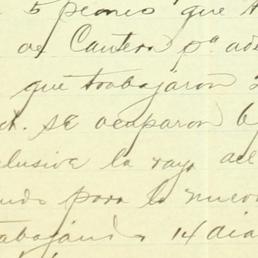 5 peones que
de Cantera pª ad
que trabajaron
se ocuparon 6
clusive la raya del
para la nueva
abajando 14 dia